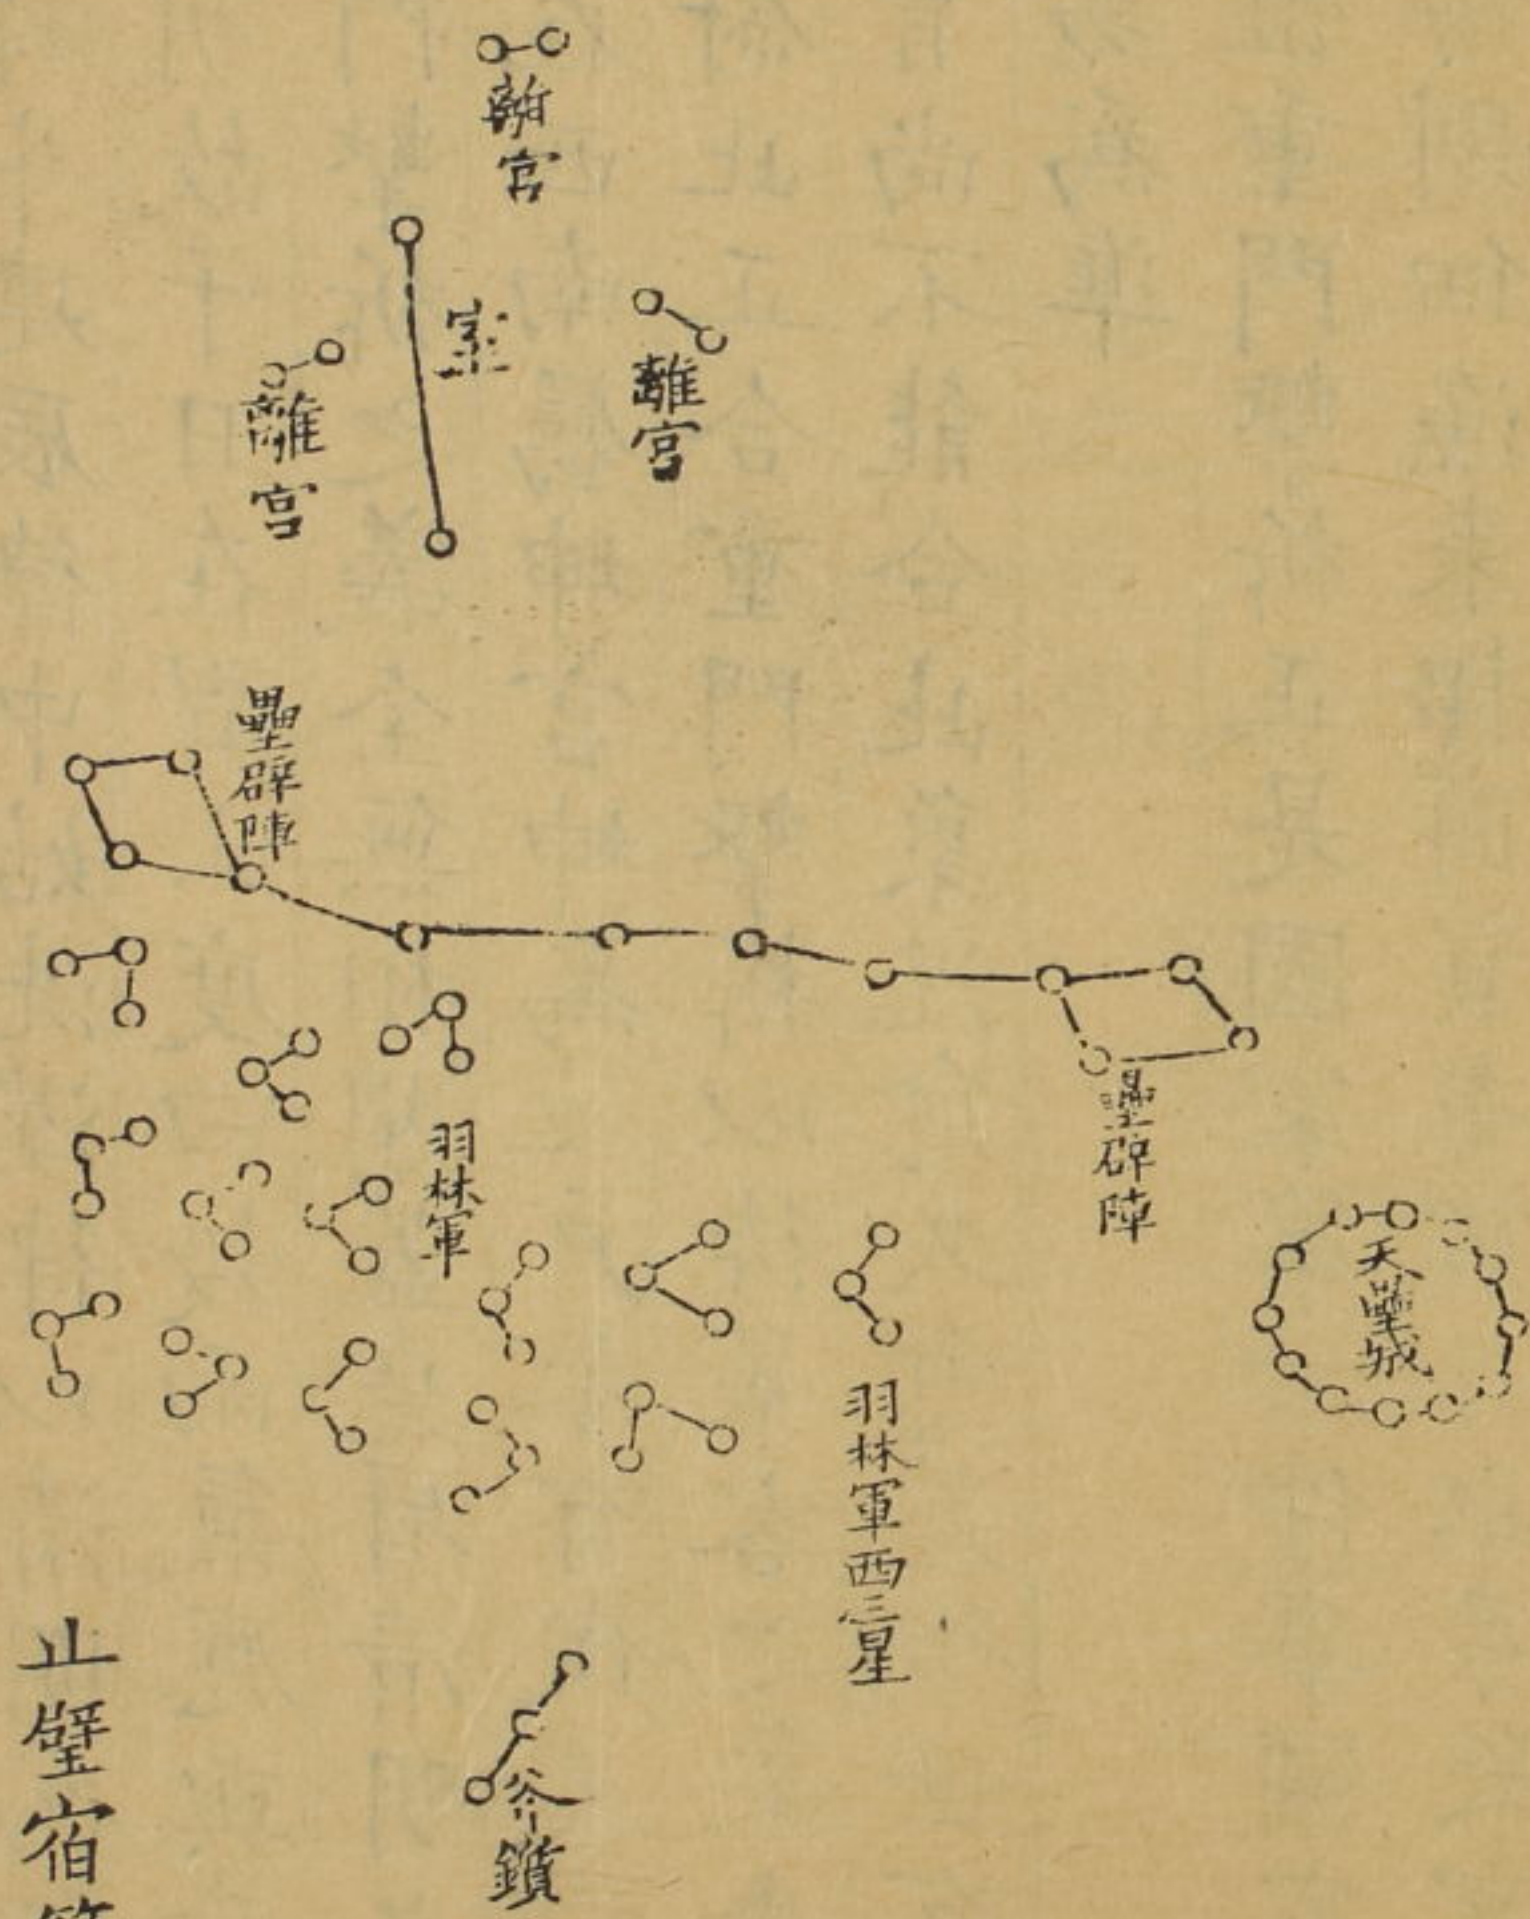 離宮
室
離宮
離宮
壘辟陣
壘辟陣
羽林軍
天壘城
羽林軍西三星
斧鑕
止壁宿